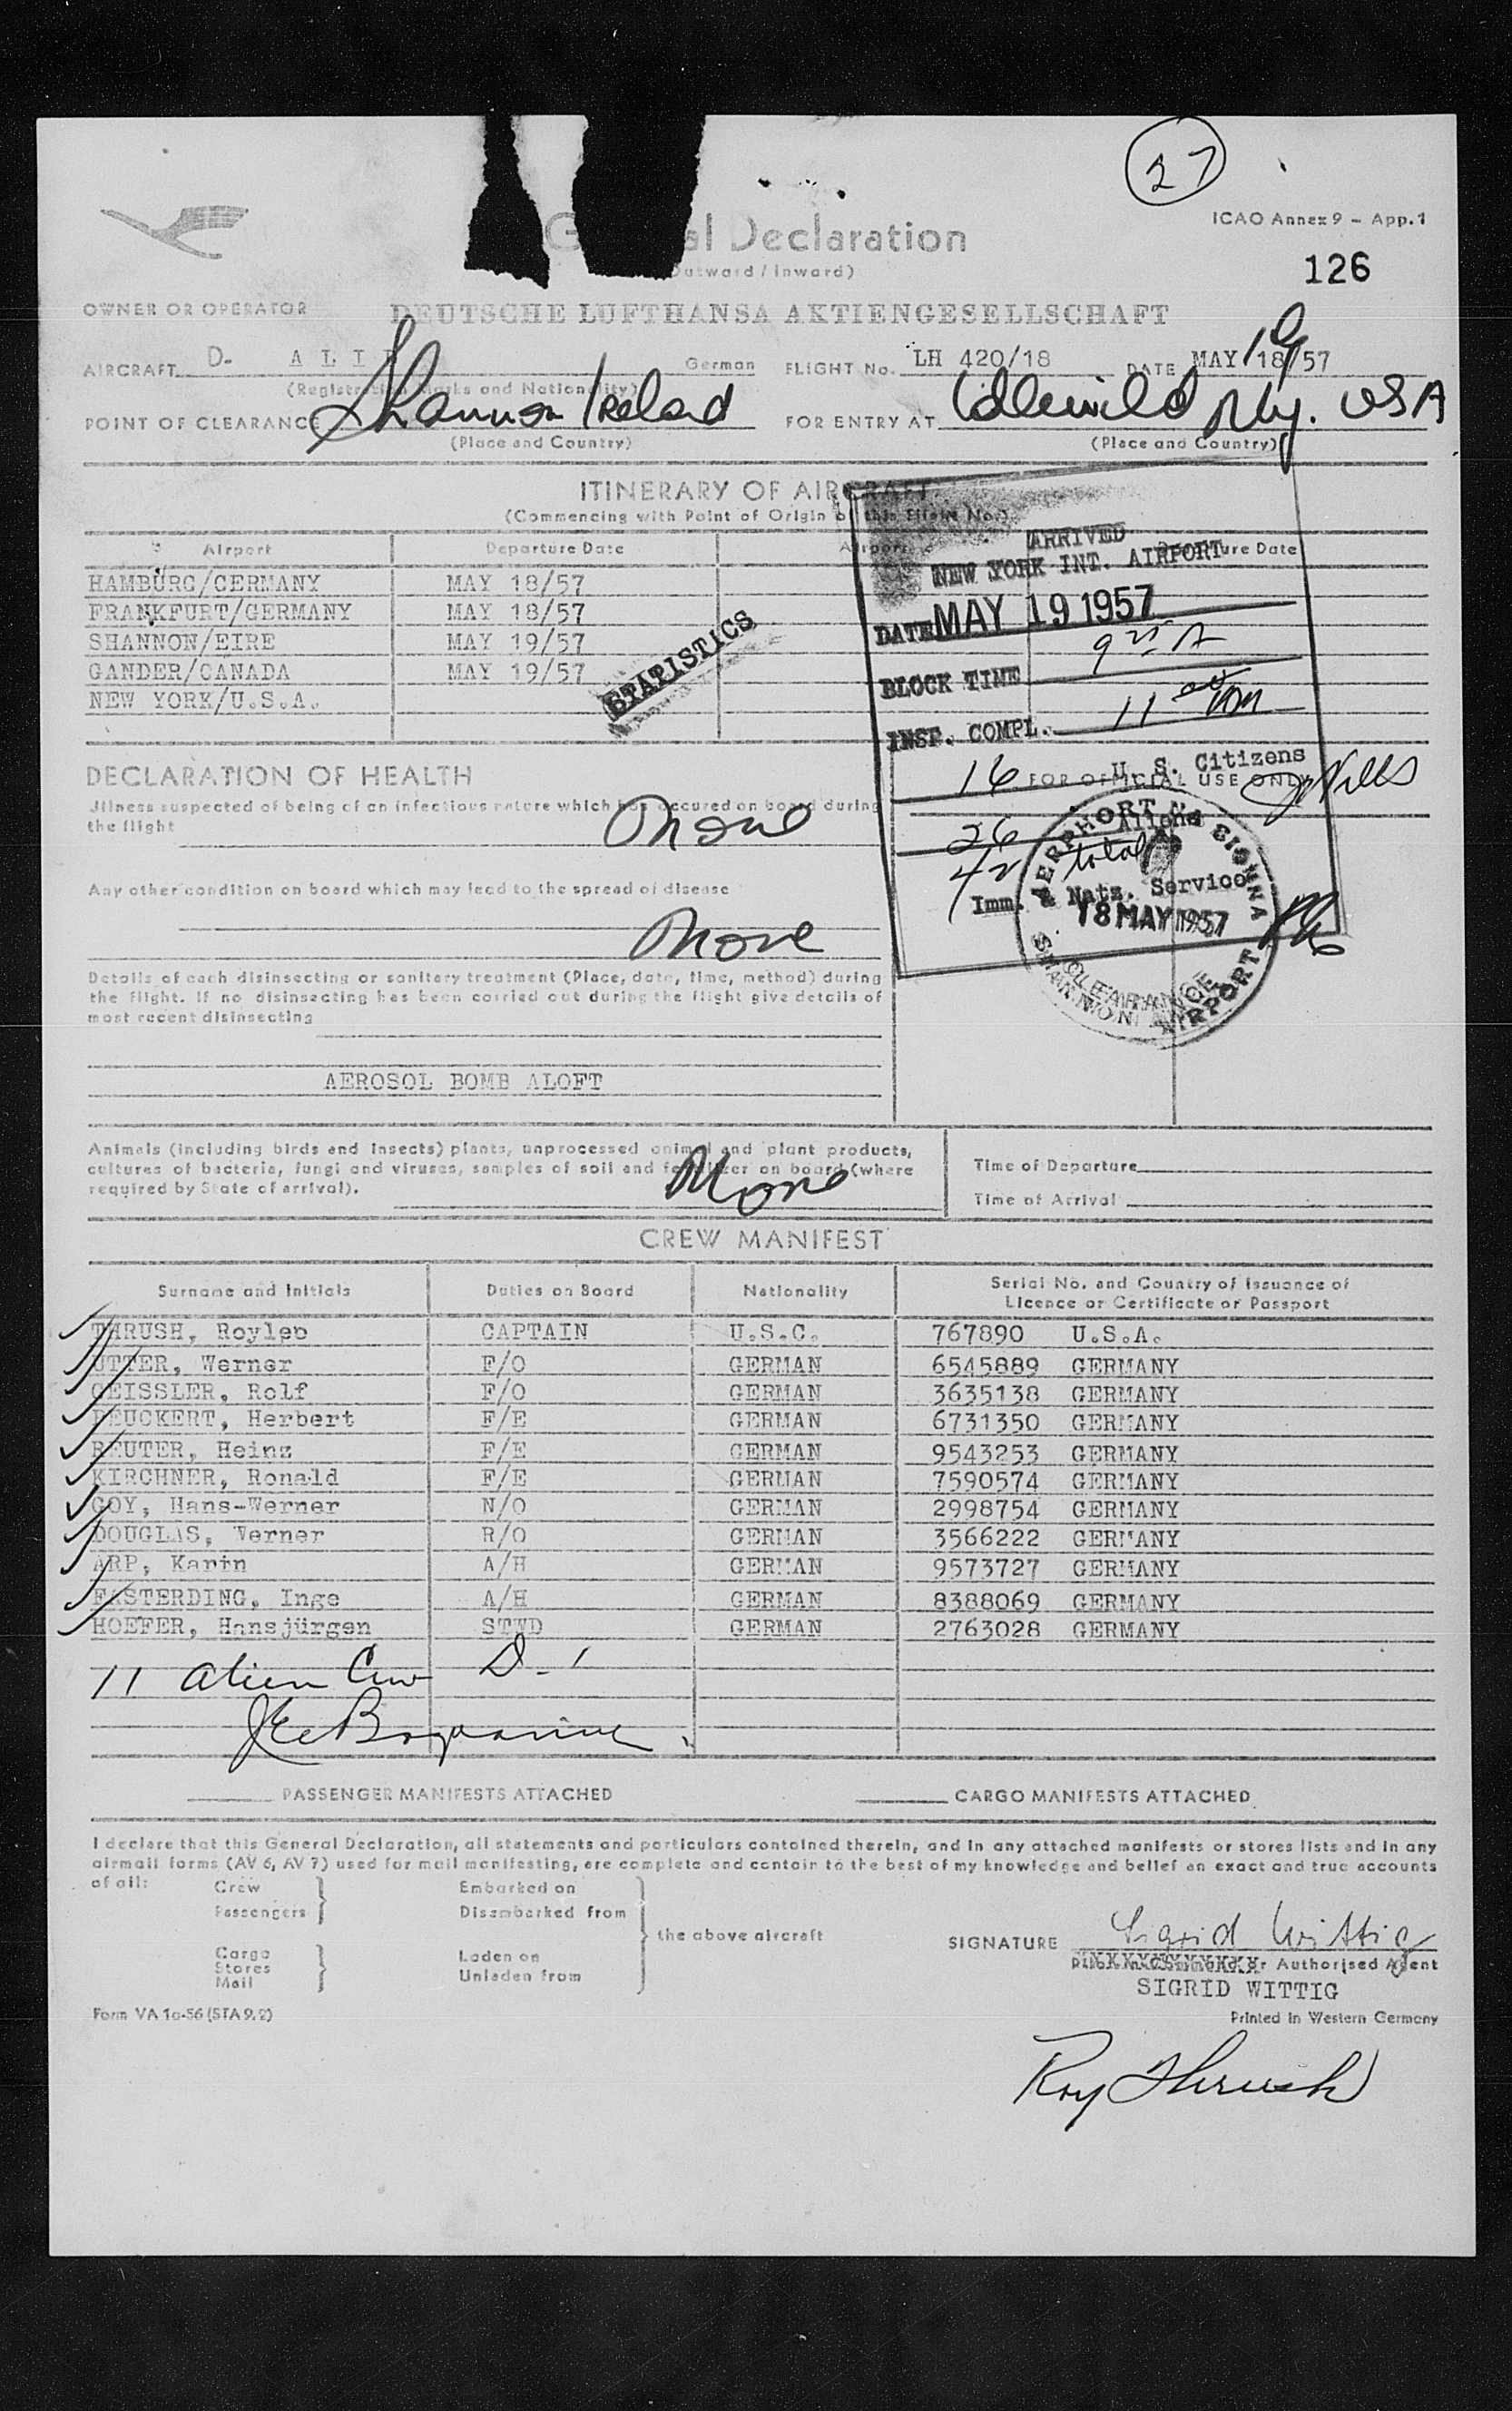 27
ICAO Annex 9 – App. 1
al Declaration
(Outward / Inward)
126
OWNER OR OPERATOR DEUTSCHE LUFTHANSA AKTIENGESELLSCHAFT
AIRCRAFT D- A L I German FLIGHT No. LH 420/18 DATE MAY 18/57
19
(Registration Marks and Nationality)
POINT OF CLEARANCE Shannon Ireland FOR ENTRY AT Idlewild NY. USA
(Place and Country) (Place and Country)
ITINERARY OF AIRCRAFT
(Commencing with Point of Origin of this Flight No.)
Airport Departure Date Airport Departure Date
HAMBURG/GERMANY MAY 18/57
FRANKFURT/GERMANY MAY 18/57
SHANNON/EIRE MAY 19/57
GANDER/CANADA MAY 19/57
NEW YORK/U.S.A.
STATISTICS
ARRIVED
NEW YORK INT. AIRPORT
DATE MAY 19 1957
BLOCK TIME 9 A
INSP. COMPL. 11
16 U. S. Citizens
26 Aliens
42 total
Imm. & Natz. Service
FOR OFFICIAL USE ONLY
AERPHORT NA SIONNA
18 MAY 1957
CLEARANCE
SHANNON AIRPORT
DECLARATION OF HEALTH
Illness suspected of being of an infectious nature which has occured on board during
the flight None
Any other condition on board which may lead to the spread of disease
None
Details of each disinsecting or sanitary treatment (Place, date, time, method) during
the flight. If no disinsecting has been carried out during the flight give details of
most recent disinsecting
AEROSOL BOMB ALOFT
Animals (including birds and insects) plants, unprocessed animal and plant products,
cultures of bacteria, fungi and viruses, samples of soil and fertilizer on board (where
required by State of arrival). None
Time of Departure
Time of Arrival
CREW MANIFEST
Surname and Initials Duties on Board Nationality Serial No. and Country of Issuance of
Licence or Certificate or Passport
THRUSH, Royleb CAPTAIN U.S.C. 767890 U.S.A.
UTTER, Werner F/O GERMAN 6545889 GERMANY
GEISSLER, Rolf F/O GERMAN 3635138 GERMANY
PEUCKERT, Herbert F/E GERMAN 6731350 GERMANY
REUTER, Heinz F/E GERMAN 9543253 GERMANY
KIRCHNER, Ronald F/E GERMAN 7590574 GERMANY
GOY, Hans-Werner N/O GERMAN 2998754 GERMANY
DOUGLAS, Werner R/O GERMAN 3566222 GERMANY
ARP, Karin A/H GERMAN 9573727 GERMANY
FASTERDING, Inge A/H GERMAN 8388069 GERMANY
HOEFER, Hansjürgen STWD GERMAN 2763028 GERMANY
11 alien Crew D-1
PASSENGER MANIFESTS ATTACHED CARGO MANIFESTS ATTACHED
I declare that this General Declaration, all statements and particulars contained therein, and in any attached manifests or stores lists and in any
airmail forms (AV 6, AV 7) used for mail manifesting, are complete and contain to the best of my knowledge and belief an exact and true accounts
of all: Crew Embarked on
Passengers Disembarked from
the above aircraft
Cargo Laden on
Stores Unladen from
Mail
SIGNATURE Sigrid Wittig
or Authorised Agent
SIGRID WITTIG
Form VA 1a-56 (STA 9.2) Printed in Western Germany
Roy Thrush